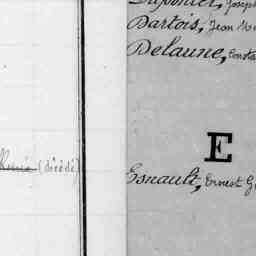 Dartois, Jean
Delaune, Const
E
(décédé)
Esnault, Ernest G